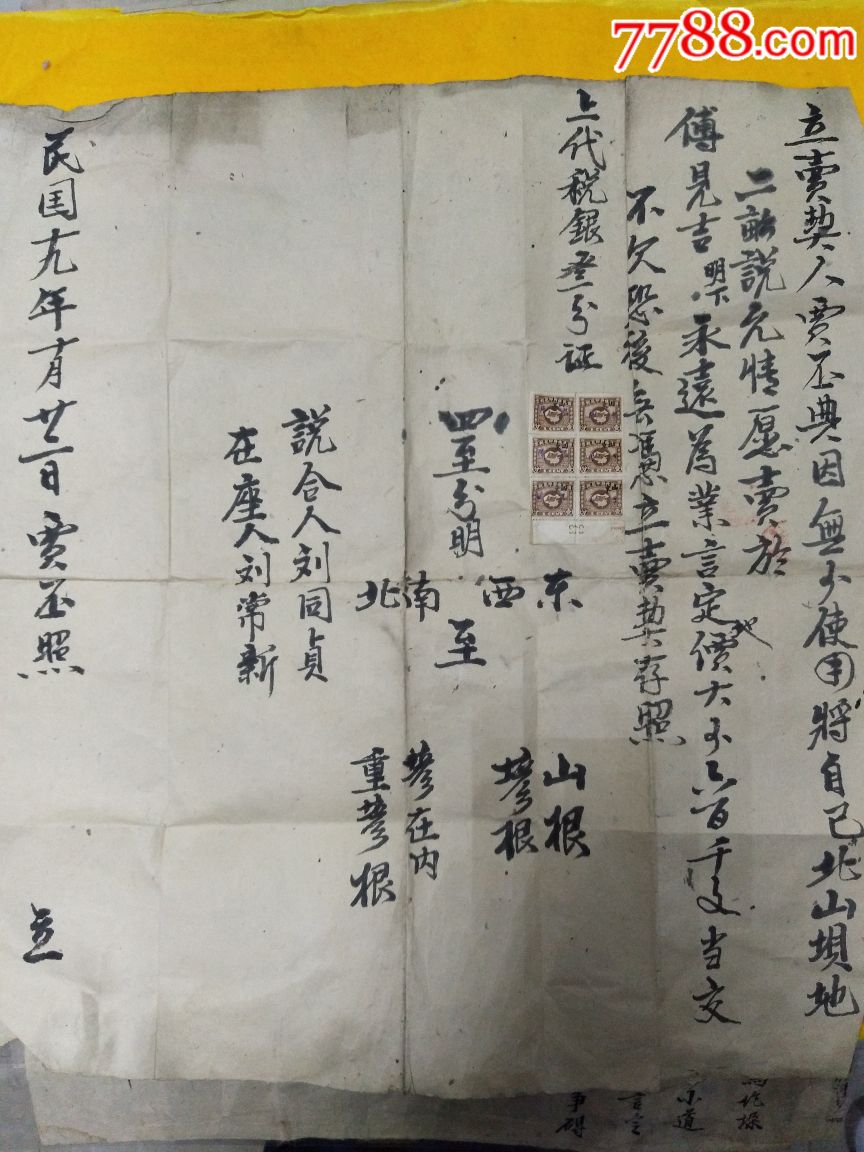 7788.com
立賣契人賈丕典因無 使用將自己北山埧地
二畝説允情愿賣於
傅見吉明下永遠為業言定地價大 六百千文当交
不欠恐後無憑立賣契存照
上代税銀壹分証
四至分明
東 西 南 北
至
山根
塄根
塄在内
重塄根
説合人刘同貞
在座人刘常新
民国十九年十月廿二日 賈丕照
立